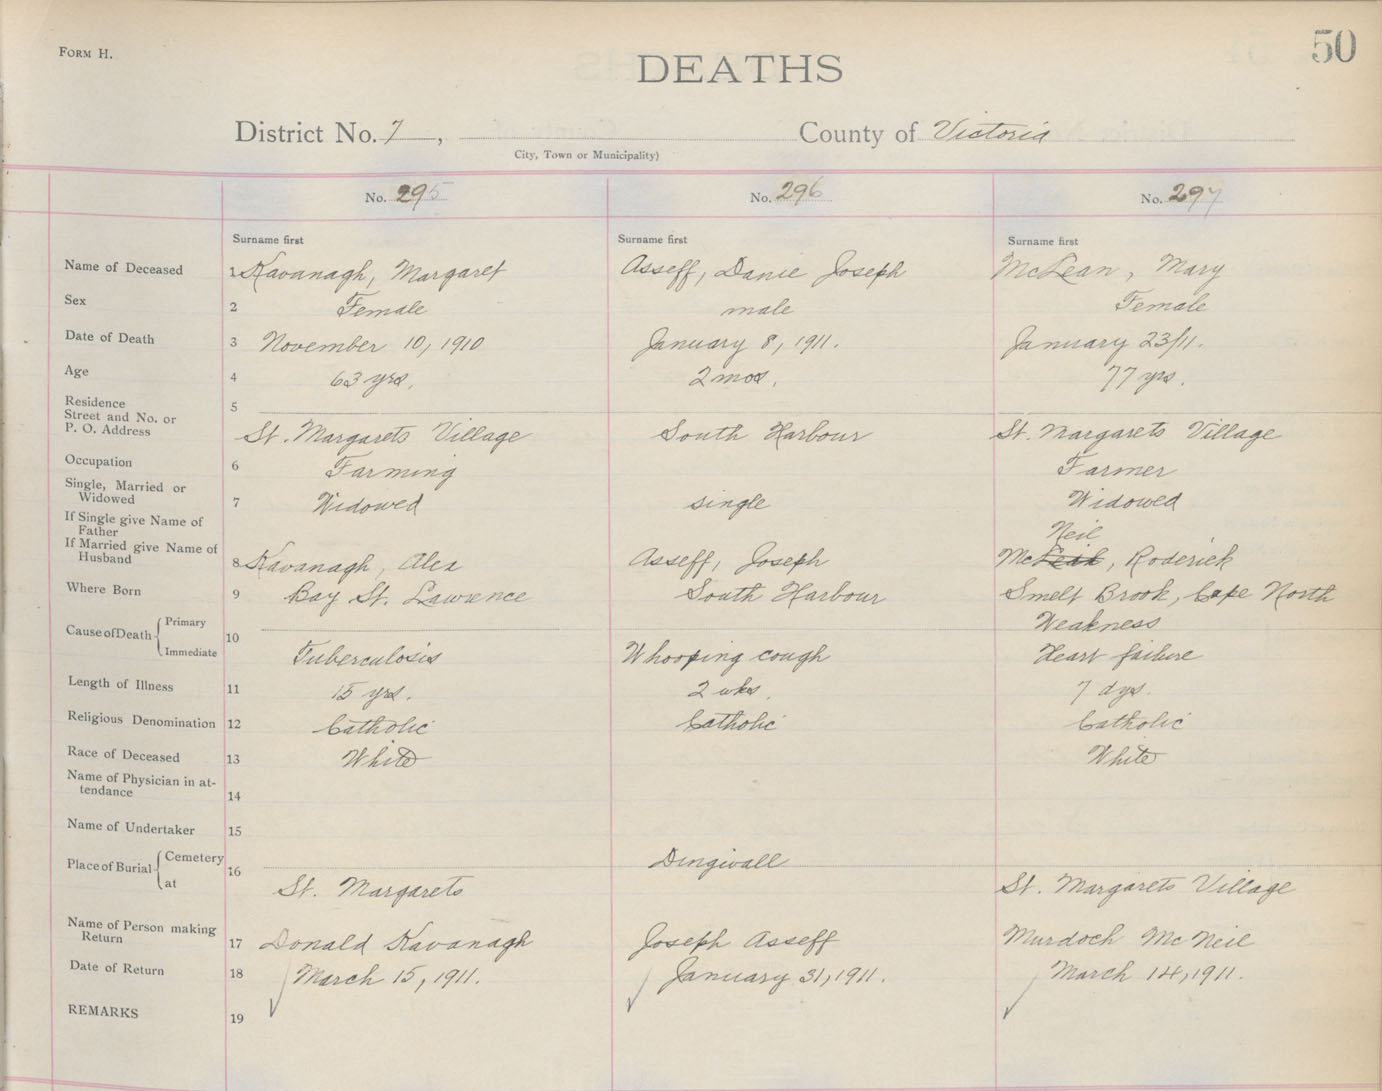 FORM H.
50
DEATHS
District No. 7, County of Victoria
City, Town or Municipality)
No. 295 No. 296 No. 297
Surname first Surname first Surname first
Name of Deceased 1 Kavanagh, Margaret Asseff, Danie Joseph McLean, Mary
Sex 2 Female male Female
Date of Death 3 November 10, 1910 January 8, 1911. January 23/11.
Age 4 63 yrs. 2 mos. 77 yrs.
Residence 5
Street and No. or
P. O. Address St. Margarets Village South Harbour St. Margarets Village
Occupation 6 Farming Farmer
Single, Married or
Widowed 7 Widowed single Widowed
If Single give Name of
Father Neil
If Married give Name of
Husband 8 Kavanagh, Alex Asseff, Joseph Mc, Roderick
Where Born 9 Bay St. Lawrence South Harbour Smelt Brook, Cape North
Cause of Death Primary 10 Weakness
Immediate Tuberculosis Whooping cough Heart failure
Length of Illness 11 15 yrs. 2 wks. 7 dys.
Religious Denomination 12 Catholic Catholic Catholic
Race of Deceased 13 White White
Name of Physician in at-
tendance 14
Name of Undertaker 15
Place of Burial Cemetery 16 Dingwall
at St. Margarets St. Margarets Village
Name of Person making
Return 17 Donald Kavanagh Joseph Asseff Murdoch McNeil
Date of Return 18 March 15, 1911. January 31, 1911. March 14, 1911.
REMARKS 19